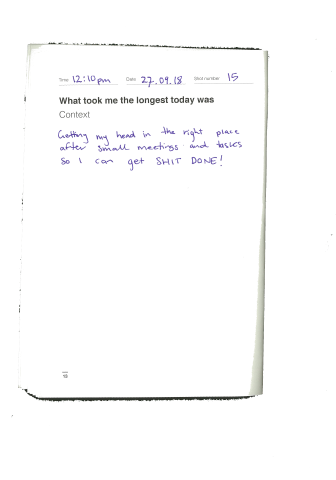 Time 12:10pm Date 27.09.18 Shot number 15
What took me the longest today was
Context
Getting my head in the right place
after small meetings and tasks
So I can get SHIT DONE!